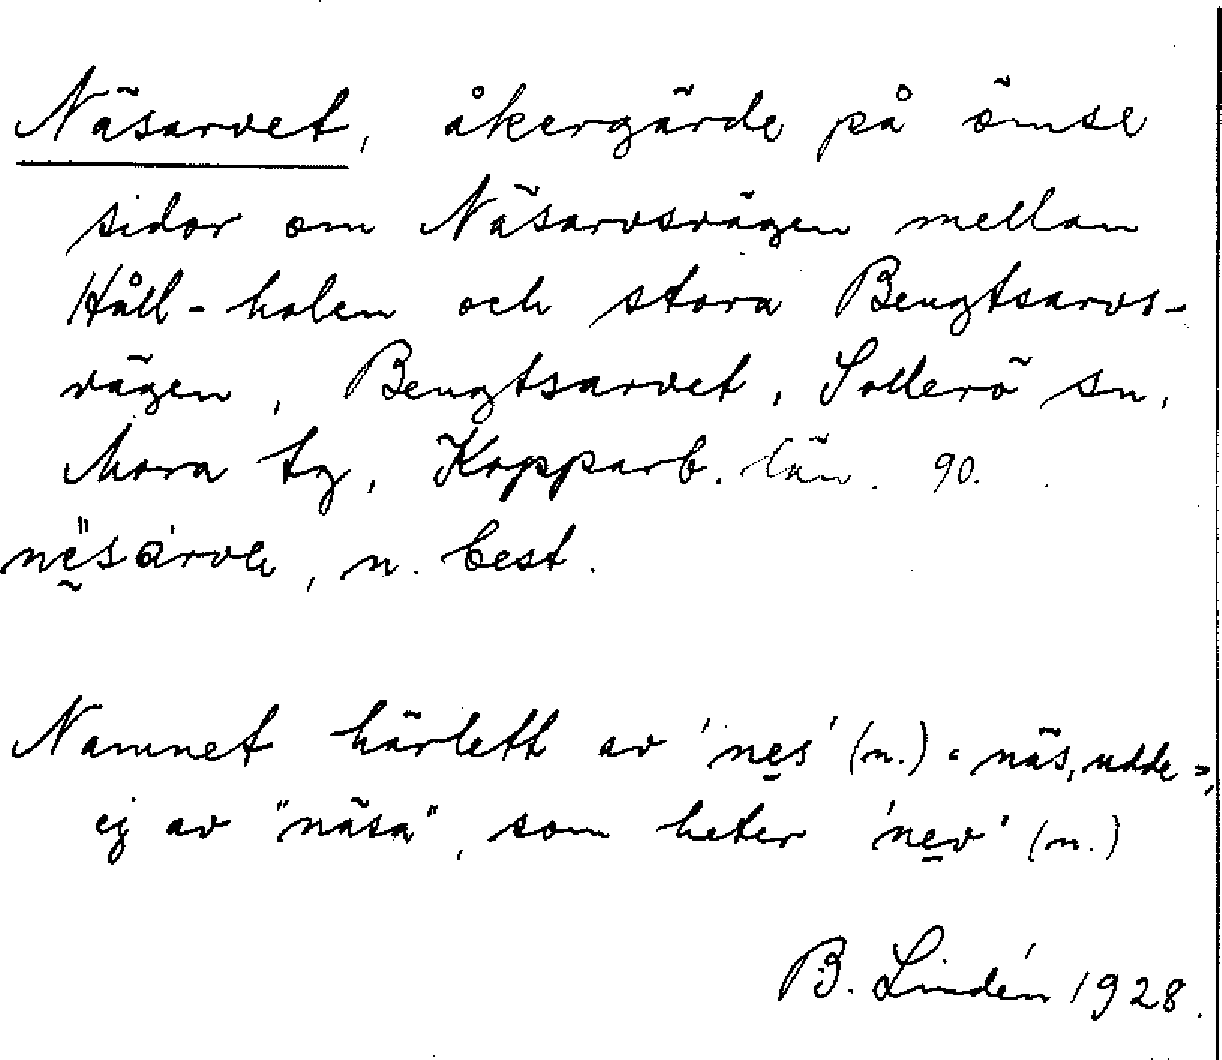 Näsarvet, åkergärde på ömse
sidor om Näsarvsvägen mellan
Håll-holen och stora Bengtsarvs-
vägen, Bengtsarvet, Sollerö sn,
Mora tg, Kopparb. län. 90.
n. best.
Namnet härlett av 'nes' (n.) "näs, udde",
ej av "näsa", som heter 'nev' (n.)
B. Lindén 1928.